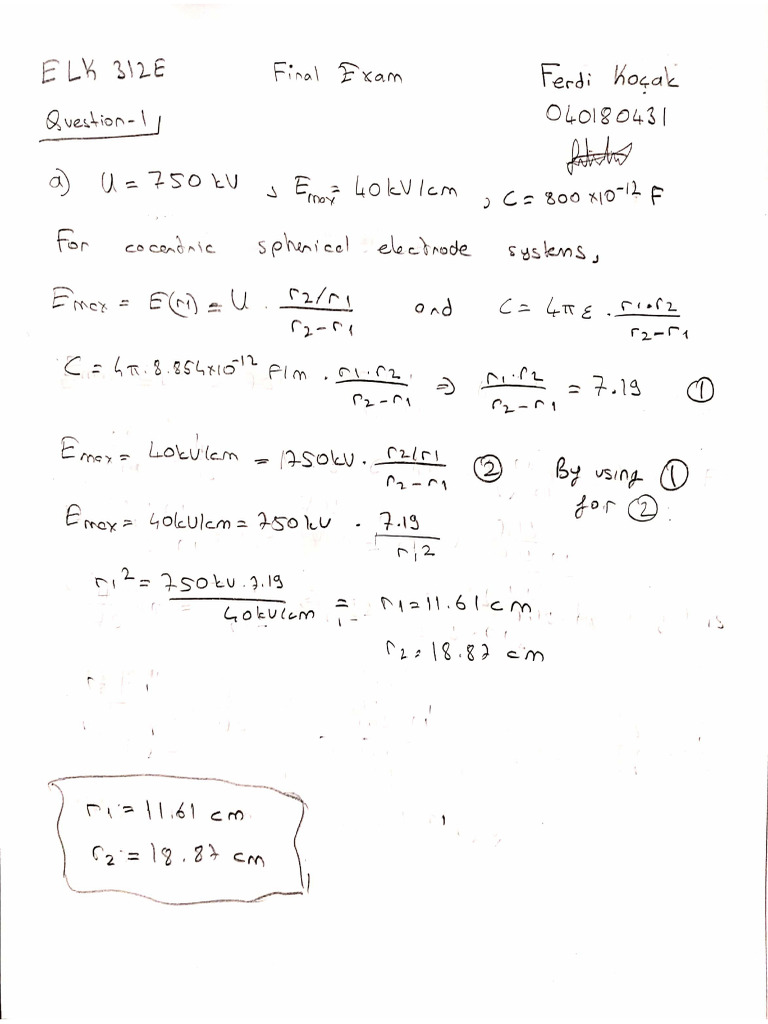 ELK 312E Final Exam Ferdi Koçak
Question-1 040180431
a) U = 750 kV , Emax = 40 kV/cm , C = 800 x10^-12 F
For cocentric spherical electrode systems,
Emax = E(r1) = U . r2/r1 / r2-r1 and C = 4πε . r1.r2 / r2-r1
C = 4π.8.854x10^-12 F/m . r1.r2 / r2-r1 ⇒ r1.r2 / r2-r1 = 7.19 ①
Emax = 40kV/cm = 750kV . r2/r1 / r2-r1 ② By using ①
for ②
Emax = 40kV/cm = 750 kV . 7.19 / r1^2
r1^2 = 750 kV . 7.19 / 40kV/cm = r1 = 11.61 cm
r2 = 18.87 cm
r1 = 11.61 cm
r2 = 18.87 cm